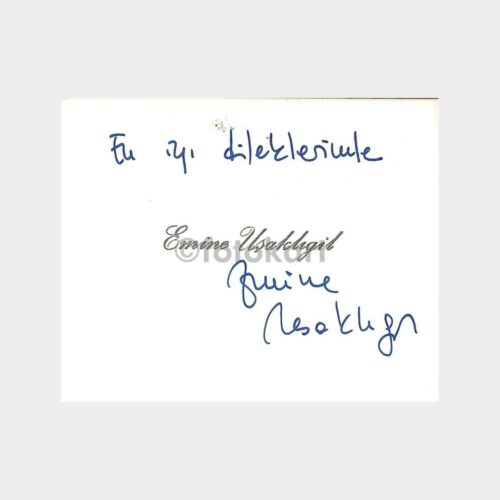 En iyi dileklerimle
Emine Uşaklıgil
©fotokart
Emine
Uşaklıgil